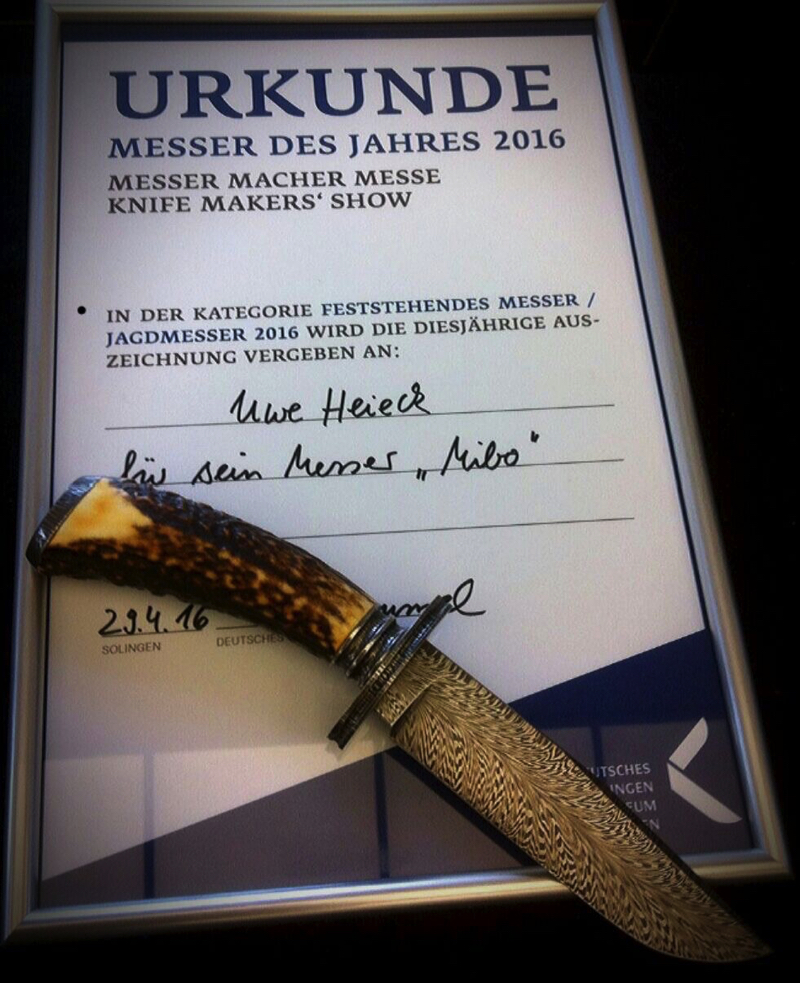 URKUNDE
MESSER DES JAHRES 2016
MESSER MACHER MESSE
KNIFE MAKERS' SHOW
• IN DER KATEGORIE FESTSTEHENDES MESSER /
JAGDMESSER 2016 WIRD DIE DIESJÄHRIGE AUS-
ZEICHNUNG VERGEBEN AN:
Uwe Heieck
für sein Messer „Mibo"
29.4.16
SOLINGEN DEUTSCHES
UTSCHES
INGEN
EUM
EN